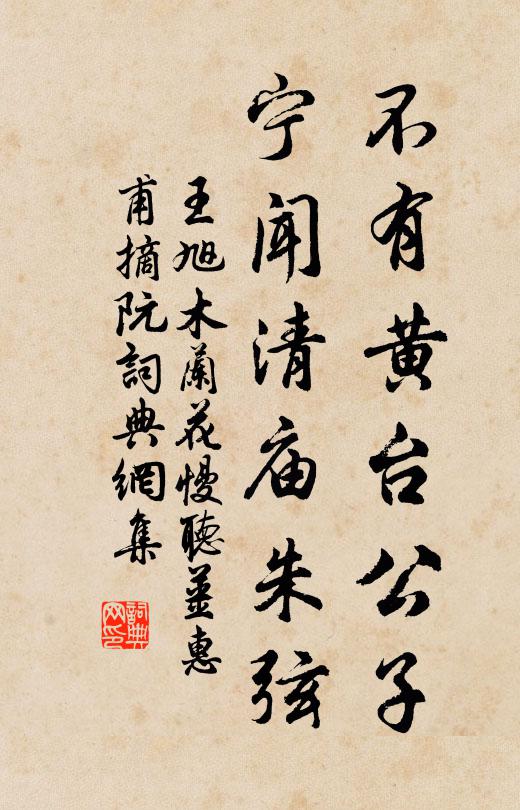 不有黄台公子
宁闻清庙朱弦
王旭木蘭花慢聽姜惠
甫摘阮詞典網集
詞典網印